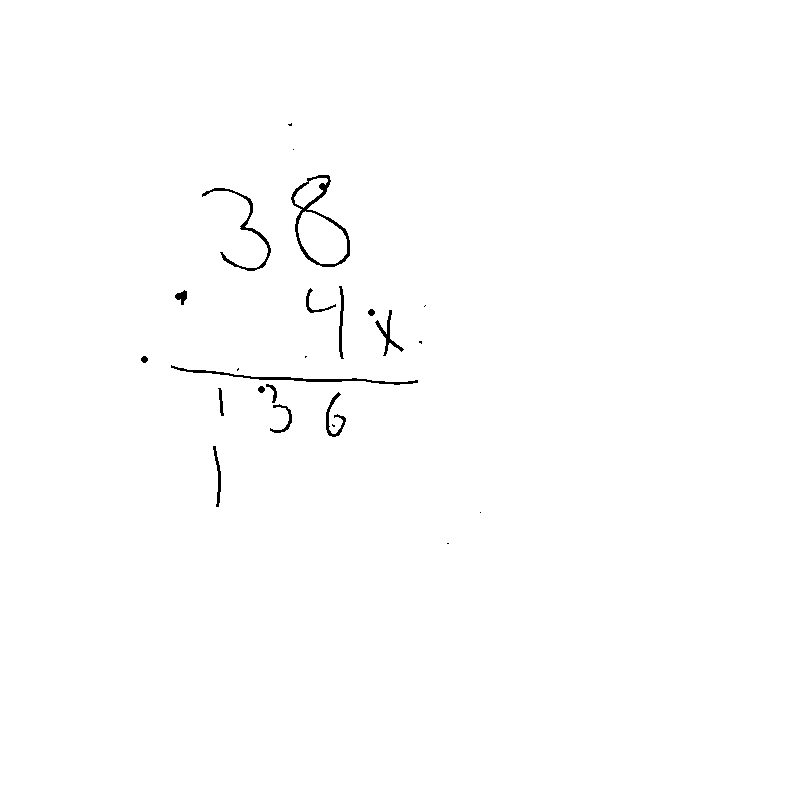 38
4x
136
1